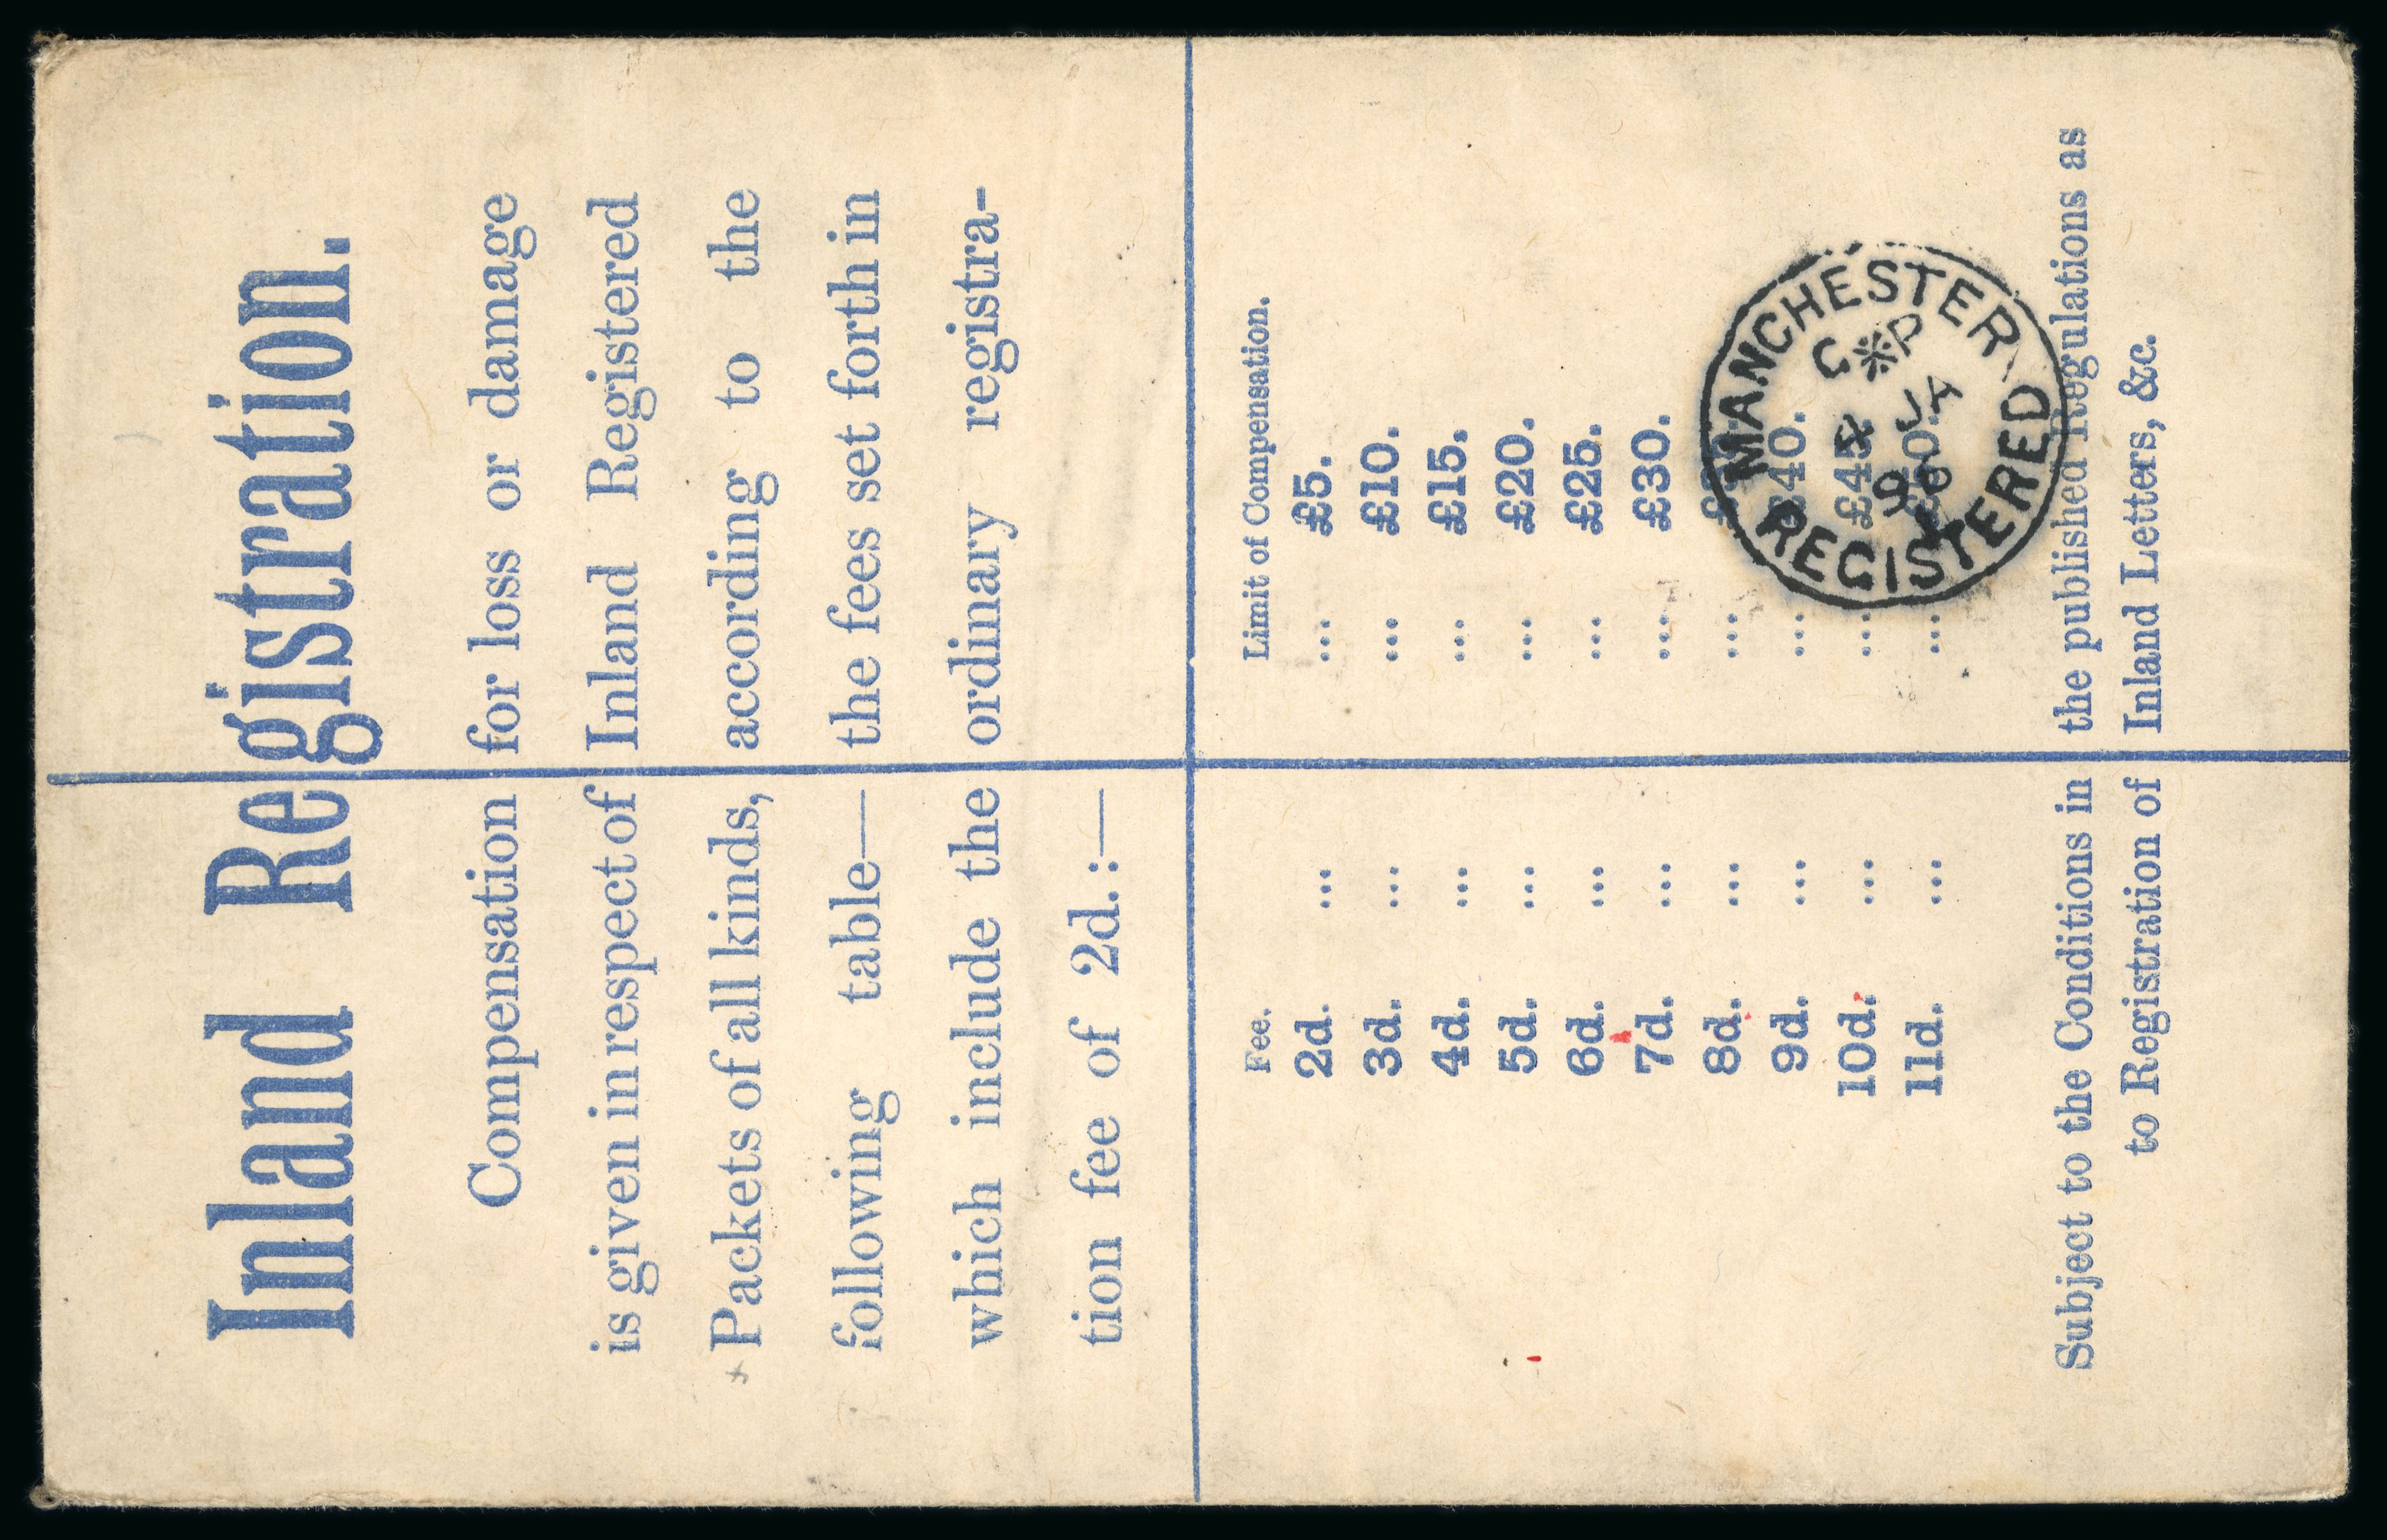 Inland Registration.
Compensation for loss or damage
is given in respect of Inland Registered
Packets of all kinds, according to the
following table— the fees set forth in
which include the ordinary registra-
tion fee of 2d.:—
Fee. Limit of Compensation.
2d. ... ... £5.
3d. ... ... £10.
4d. ... ... £15.
5d. ... ... £20.
6d. ... ... £25.
7d. ... ... £30.
8d. ... ...
9d. ... ... £40.
10d. ... ... £45
11d. ... ...
Subject to the Conditions in the published Regulations as
to Registration of Inland Letters, &c.
MANCHESTER
C * P
JA
REGISTERED